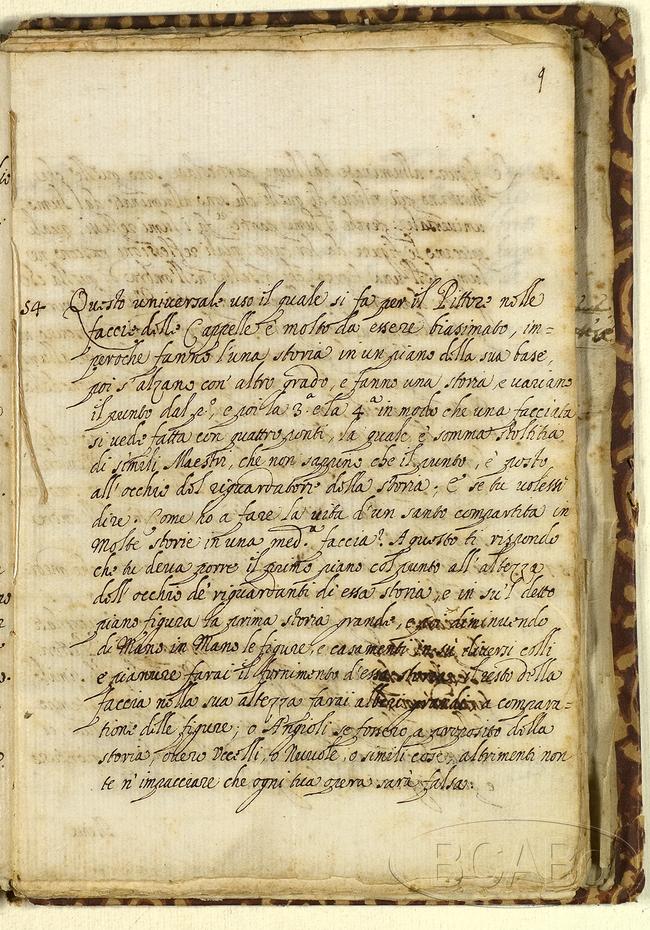 9
54 Questo universale uso il quale si fa per il Pittore nelle
faccie delle Cappelle è molto da essere biasimato, im=
peroche fanno l'una storia in un piano della sua base,
poi s'alzano con altro grado, e fanno una storia, e variano
il punto dal p.º, e poi la 3.ª e la 4.ª in modo che una facciata
si vede fatta con quattro ponti, la quale è somma stoltitia
di simili Maestri, che non sappino che il punto, è posto
all'occhio del riguardatore della storia. E se tu volessi
dire: Come ho a fare la vita d'un santo compartita in
Molte storie in una med.ª faccia? A questo ti rispondo
che tu deva porre il primo piano col punto all'altezza
dell'occhio de' riguardanti di essa storia, e in su'l detto
piano figura la prima storia grande, e poi diminuendo
di Mano in Mano le figure, e casamenti in su diversi colli
e pianure farai il fornimento d'essa storia, il resto della
faccia nella sua altezza farai alberi grandi a compara=
tione delle figure; o Angioli se fossero a proposito della
storia, overo Vccelli, o Nuvole, o simili cose, altrimenti non
te n'impacciare che ogni tua opera sarà falsa.
BCABo